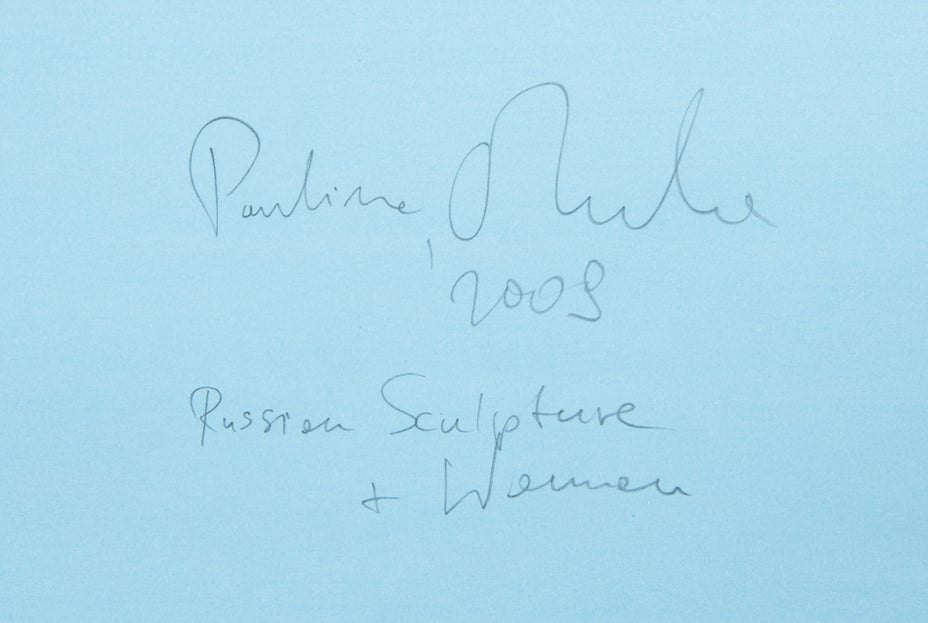 Pauline,
2009
Russian Sculpture
+ Woman